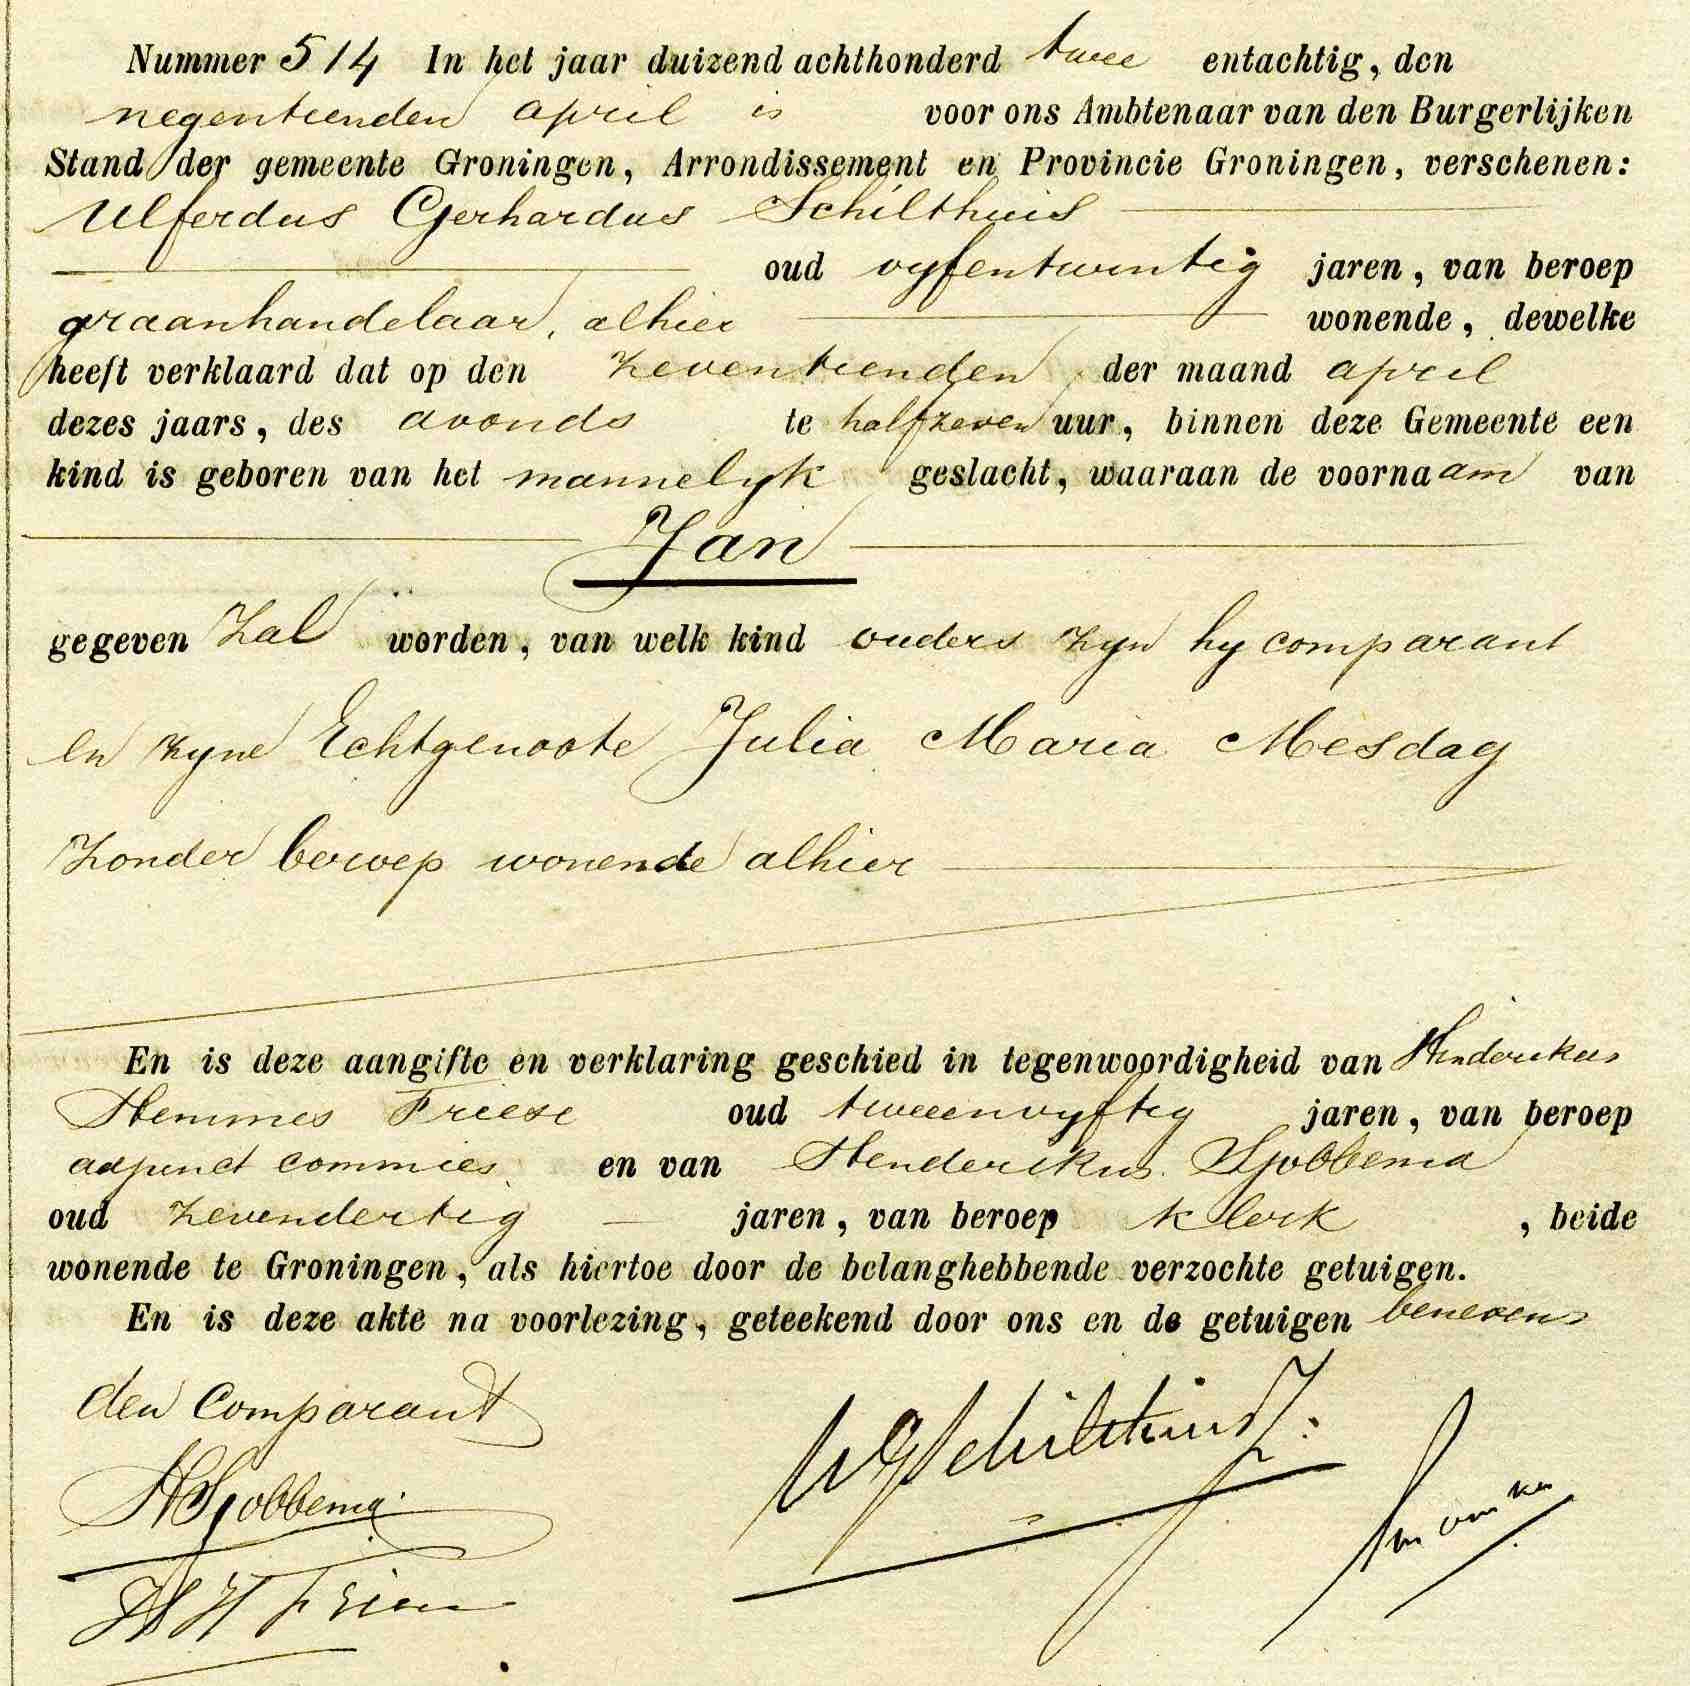 Nummer 514 In het jaar duizend achthonderd twee entachtig, den
negentienden april is voor ons Ambtenaar van den Burgerlijken
Stand der gemeente Groningen, Arrondissement en Provincie Groningen, verschenen:
Ulferdus Gerhardus Schilthuis
oud vyfentwintig jaren, van beroep
graanhandelaar, alhier wonende, dewelke
heeft verklaard dat op den zeventienden der maand april
dezes jaars, des avonds te halfzeven uur, binnen deze Gemeente een
kind is geboren van het mannelyk geslacht, waaraan de voornaam van
Jan
gegeven zal worden, van welk kind ouders zyn hy comparant
en zyne Echtgenoote Julia Maria Mesdag
zonder beroep wonende alhier
En is deze aangifte en verklaring geschied in tegenwoordigheid van Henderikus
Hemmes Friese oud tweeenvyftig jaren, van beroep
adjunct commies en van Henderikus Sjobbema
oud zevendertig jaren, van beroep klerk, beide
wonende te Groningen, als hiertoe door de belanghebbende verzochte getuigen.
En is deze akte na voorlezing, geteekend door ons en de getuigen benevens
den Comparant
UGSchilthuis
HSjobbema
HH Friese